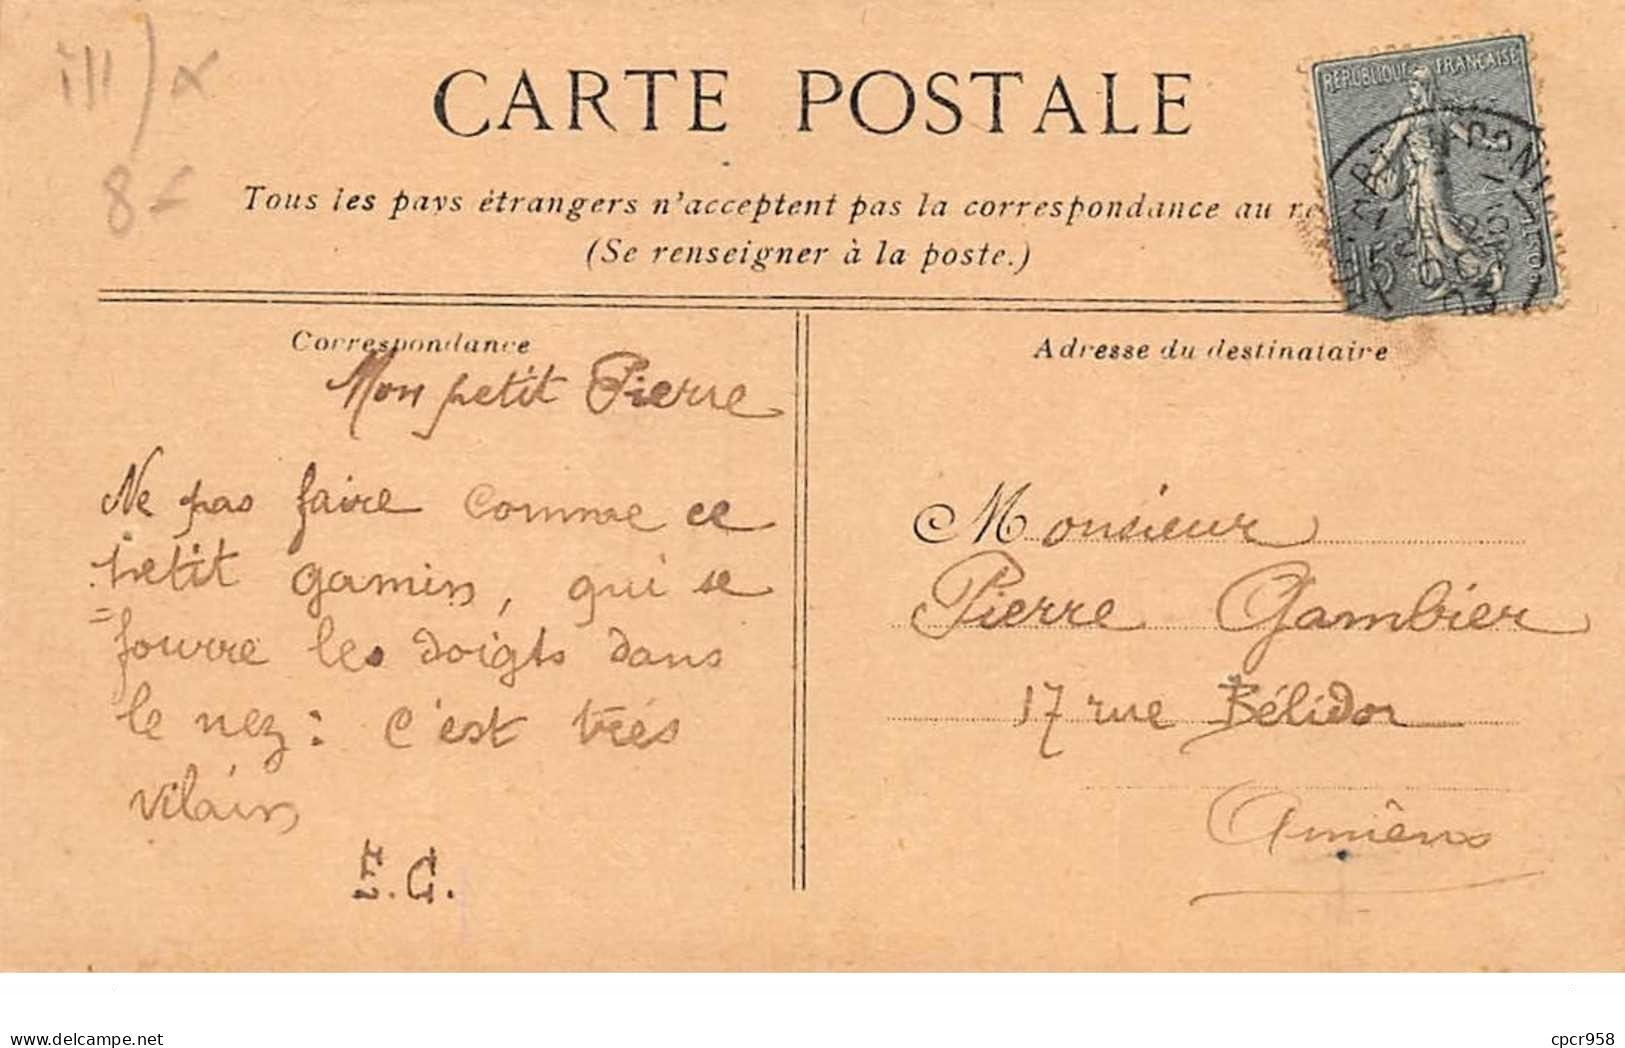 ill) x
8 €
CARTE POSTALE
REPUBLIQUE FRANÇAISE
Tous les pays étrangers n'acceptent pas la correspondance au
(Se renseigner à la poste.)
15
OCT
03
Correspondance
Mon petit Pierre
Ne pas faire comme ce
petit gamin, qui se
fourre les doigts dans
le nez : c'est très
vilain
E.G.
Adresse du destinataire
Monsieur
Pierre Gambier
17 rue Bélidor
Amiens
www.delcampe.net
cpcr958